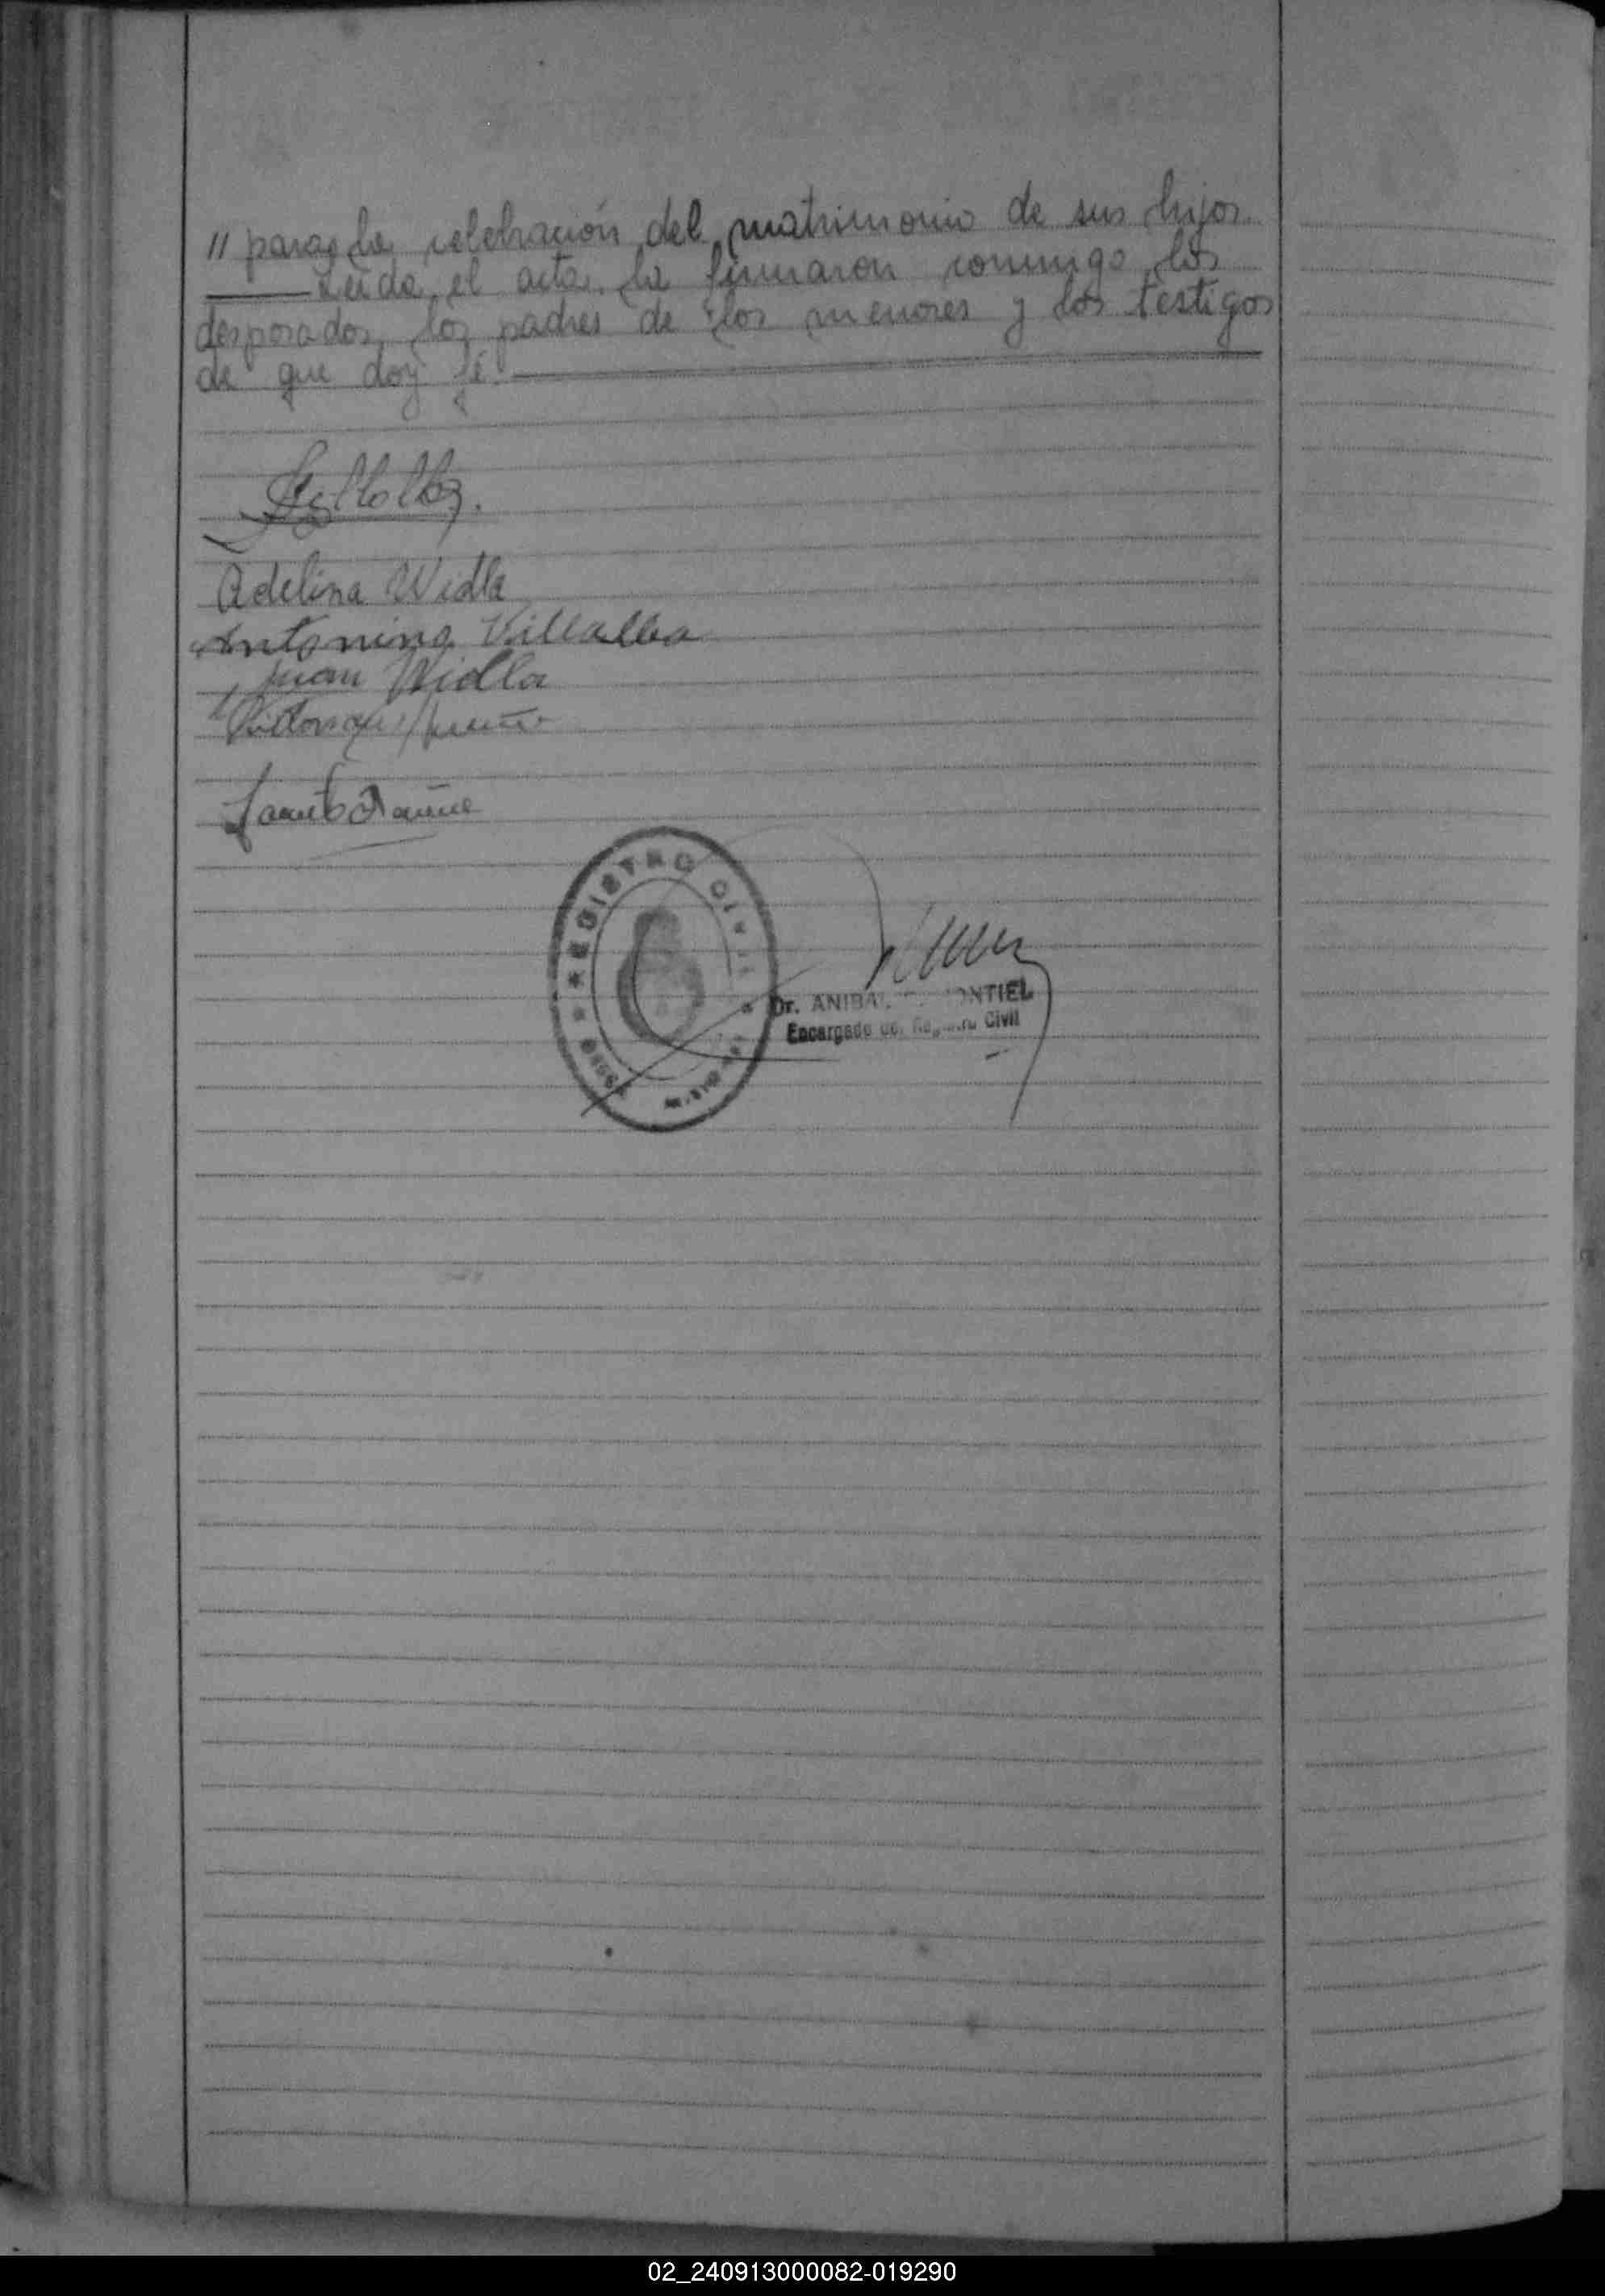 // para la celebración del matrimonio de sus hijos.
Leída el acta, la firmaron conmigo los
desposados, los padres de los menores y los testigos
de que doy fé.
Adelina Widla
Antonina Villalba
Juan Widla
REGISTRO CIVIL
Dr. ANIBAL ONTIEL
Encargado del Registro Civil
02_240913000082-019290